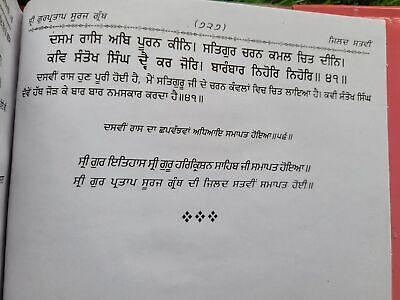 ਸ੍ਰੀ ਗੁਰਪ੍ਰਤਾਪ ਸੂਰਜ ਗ੍ਰੰਥ (੭੨੭) ਜਿਲਦ ਸਤਵੀਂ
ਦਸਮ ਰਾਸਿ ਅਬਿ ਪੂਰਨ ਕੀਨਿ। ਸਤਿਗੁਰ ਚਰਨ ਕਮਲ ਚਿਤ ਦੀਨਿ।
ਕਵਿ ਸੰਤੋਖ ਸਿੰਘ ਦ੍ਵੈ ਕਰ ਜੋਰਿ। ਬਾਰੰਬਾਰ ਨਿਹੋਰਿ ਨਿਹੋਰਿ॥ ੪੧॥
ਦਸਵੀਂ ਰਾਸ ਹੁਣ ਪੂਰੀ ਹੋਈ ਹੈ, ਮੈਂ ਸਤਿਗੁਰੂ ਜੀ ਦੇ ਚਰਨ ਕੰਵਲਾਂ ਵਿਚ ਚਿਤ ਲਾਇਆ ਹੈ। ਕਵੀ ਸੰਤੋਖ ਸਿੰਘ
ਦੋਵੇਂ ਹੱਥ ਜੋੜ ਕੇ ਬਾਰ ਬਾਰ ਨਮਸਕਾਰ ਕਰਦਾ ਹੈ॥੪੧॥
ਦਸਵੀਂ ਰਾਸ ਦਾ ਛਪਵੰਝਵਾਂ ਅਧਿਆਇ ਸਮਾਪਤ ਹੋਇਆ॥੫੬॥
ਸ੍ਰੀ ਗੁਰ ਇਤਿਹਾਸ ਸ੍ਰੀ ਗੁਰੂ ਹਰਿਕ੍ਰਿਸ਼ਨ ਸਾਹਿਬ ਜੀ ਸਮਾਪਤ ਹੋਇਆ॥
ਸ੍ਰੀ ਗੁਰ ਪ੍ਰਤਾਪ ਸੂਰਜ ਗ੍ਰੰਥ ਦੀ ਜਿਲਦ ਸਤਵੀਂ ਸਮਾਪਤ ਹੋਈ॥